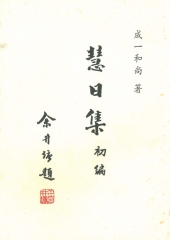 成一和尚 著
慧日集
初編
余井塘題